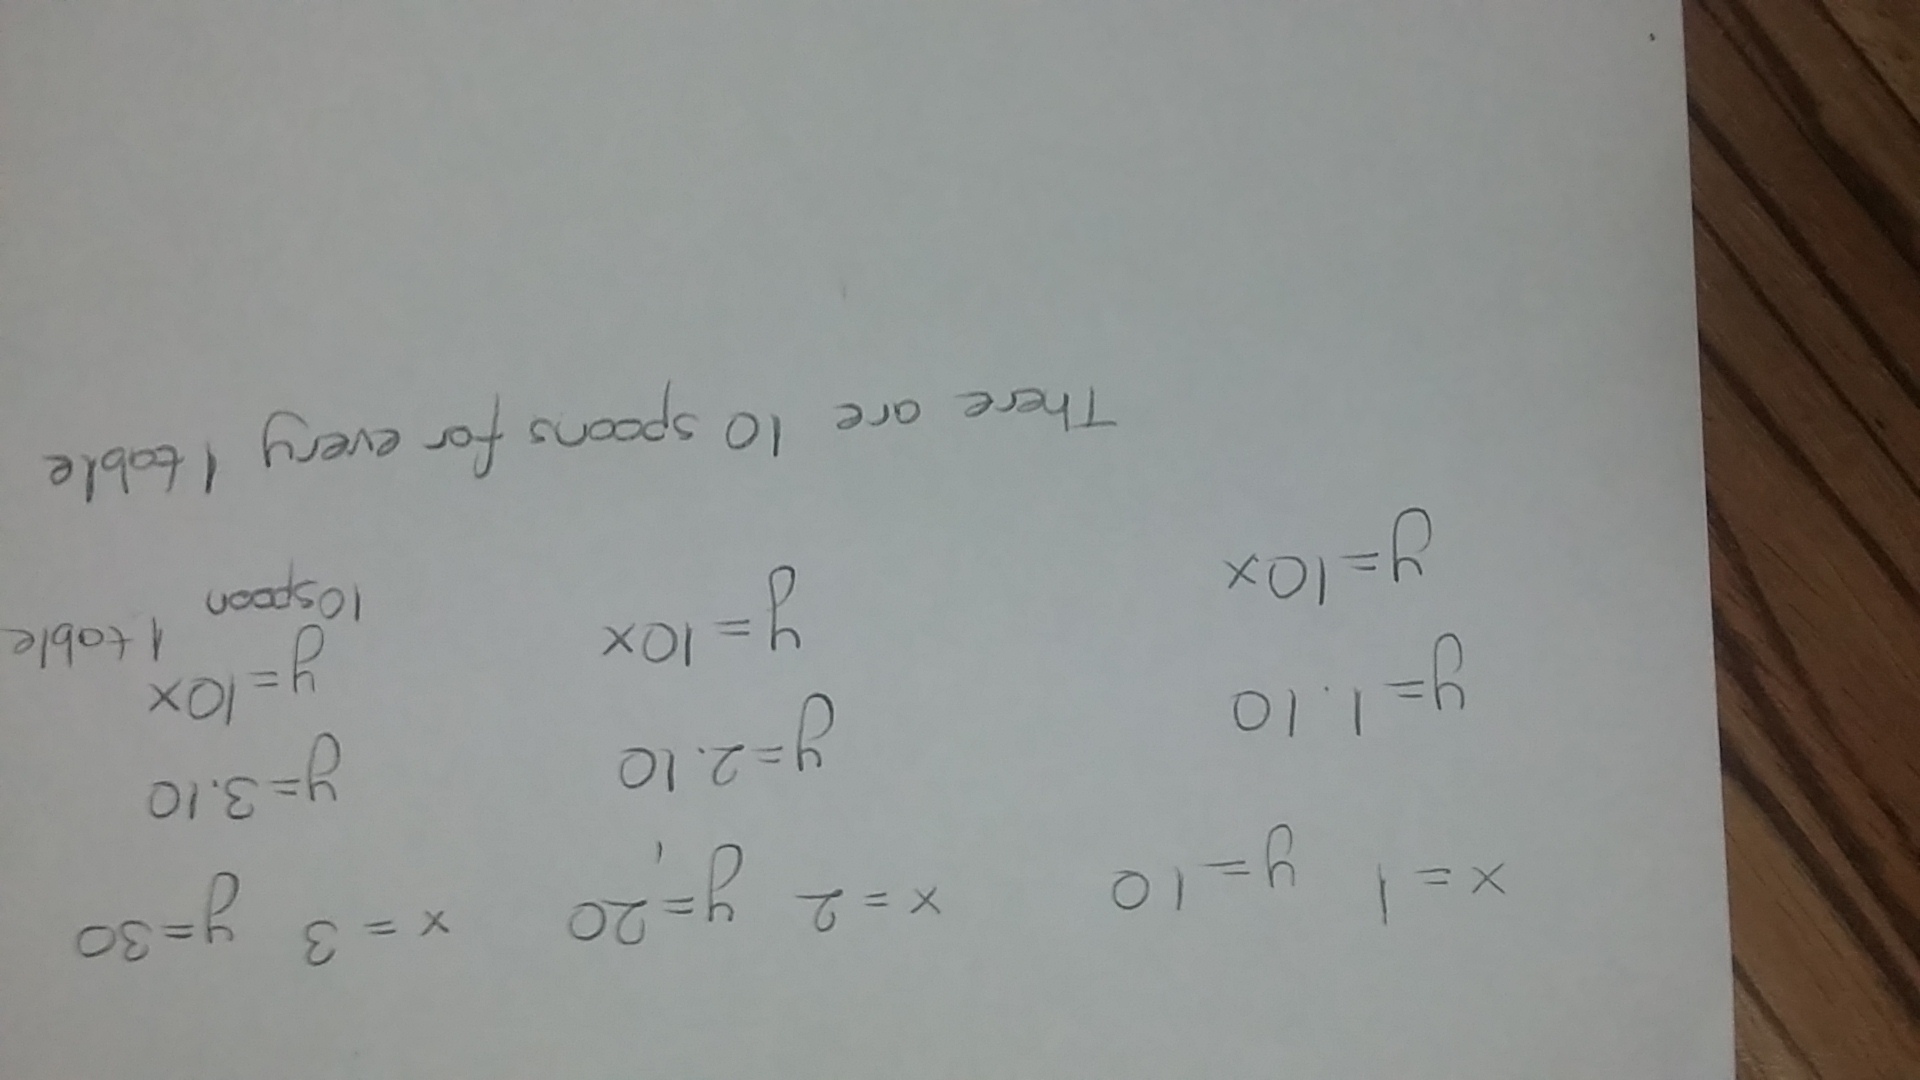 x = 1 y = 10 x = 2 y = 20 x = 3 y = 30
y = 1 . 10 y = 2 . 10 y = 3 . 10
y = 10x y = 10x y = 10x 1 table
10 spoon
There are 10 spoons for every 1 table